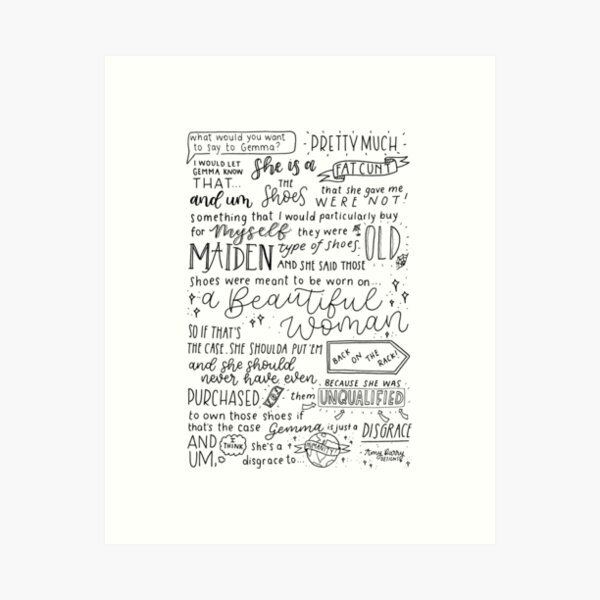 what would you want
to say to Gemma?
PRETTY MUCH
I WOULD LET
GEMMA KNOW
THAT...
She is a
FAT CUNT
and um
THE
Shoes
that she gave me
WERE NOT!
something that I would particularly buy
for Myself they were
type of shoes.
OLD
MAIDEN
AND SHE SAID THOSE
shoes were meant to be worn on...
a Beautiful
Woman
SO IF THAT'S
THE CASE, SHE SHOULDA PUT 'EM
BACK ON THE RACK!
and she should
never have even
BECAUSE SHE WAS
PURCHASED them UNQUALIFIED
to own those shoes if
that's the case Gemma is just a DISGRACE
AND
UM,
I THINK
she's a
disgrace to...
HUMANITY!
Amy Barry
DESIGNS